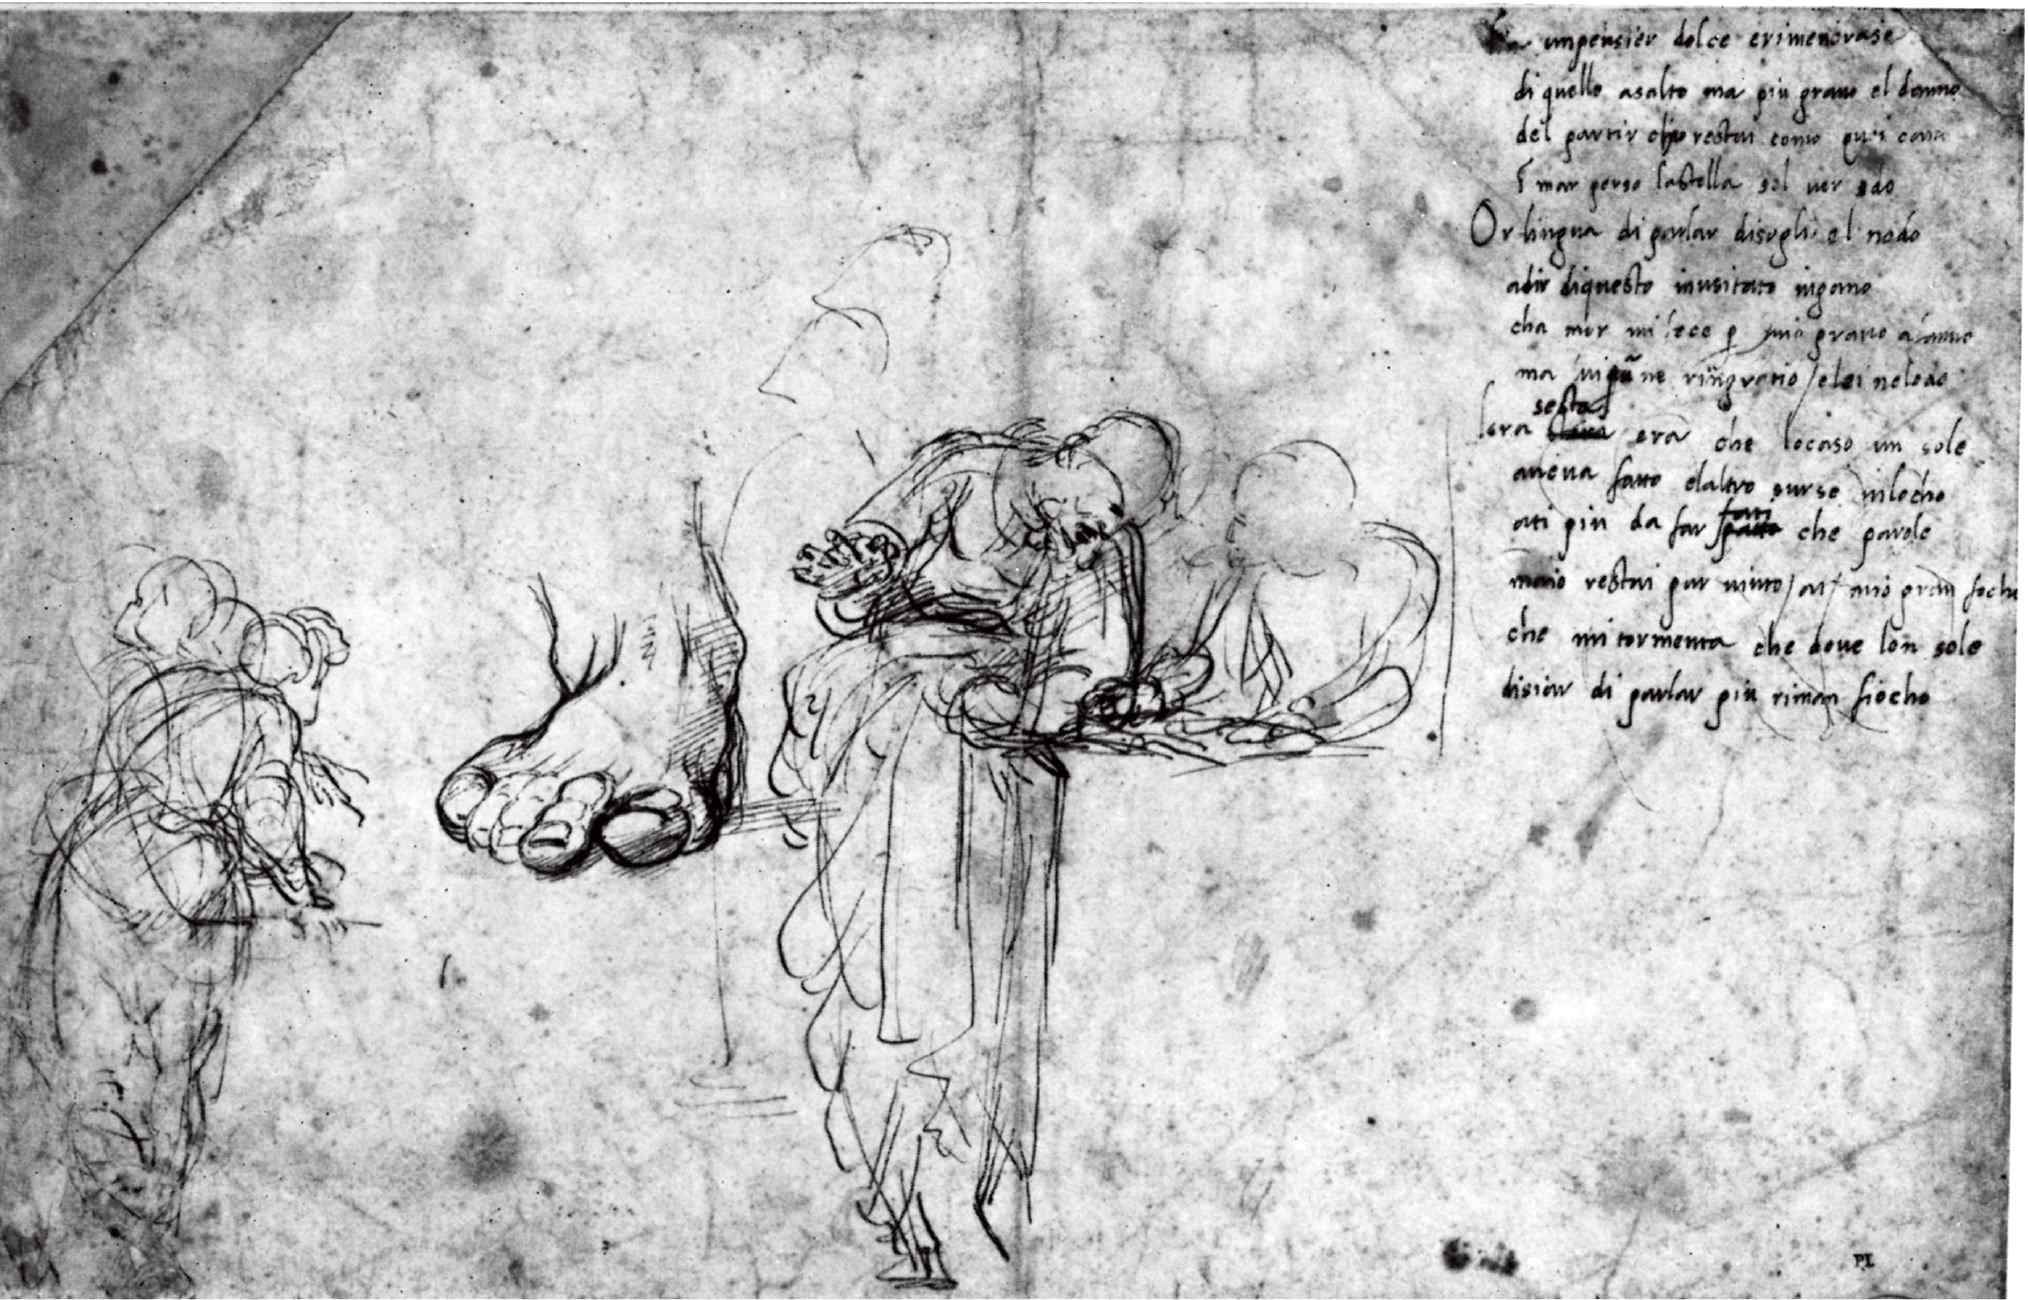 un pensier dolce e rimenbrase
di quello asalto ma piu gravo el danno
del partir chio restai como quei cana
ī mar perso la stella sol ver odo
Or lingua di parlar disogli el nodo
a dir di questo inusitato ingano
cha mor mi fece p mio gravo afanno
ma lui pur ne ringratio / e lei ne lodo
sesta
lora era che locaso un sole
aveva fatto elaltro surse in locho
ati piu da far fati che parole
ma io restai pur vinto / al mio gran focho
che mi tormenta che dove lon sole
disiar di parlar piu riman fiocho
P.L